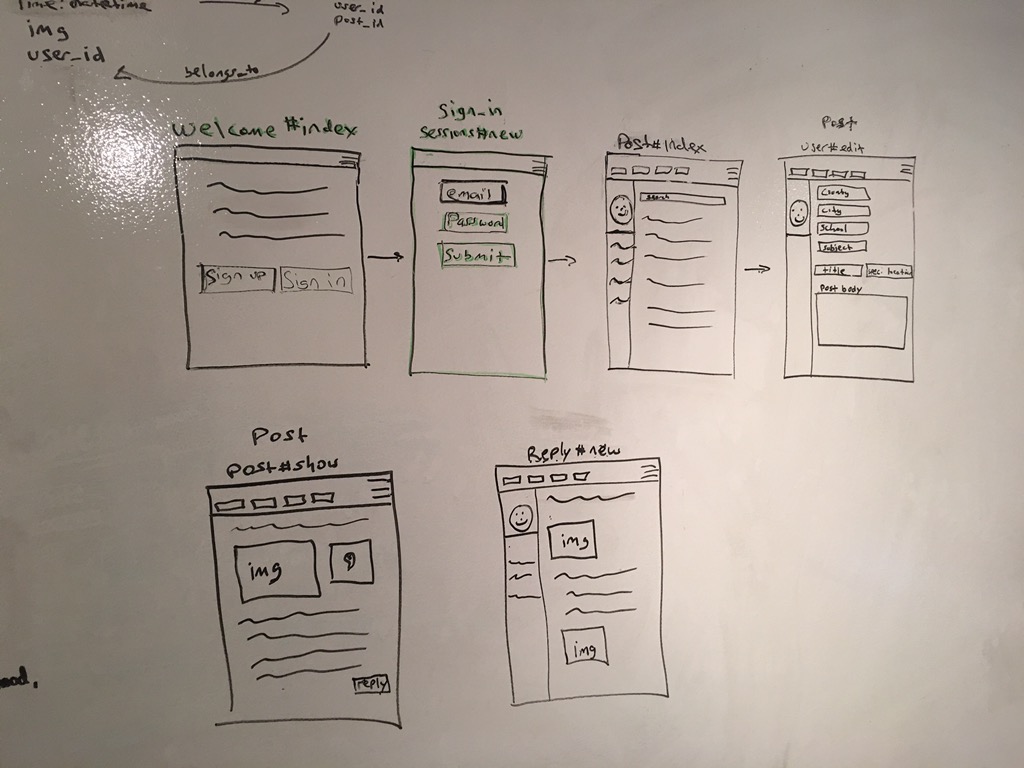 Time: datetime
img
user_id
user_id
post_id
belongs_to
Welcome #index
Sign up
Sign in
Sign_in
sessions#new
email
Password
Submit
Post#Index
search
Post
user#edit
County
city
School
subject
title
Post body
Post
post#show
img
reply
Reply#new
img
img